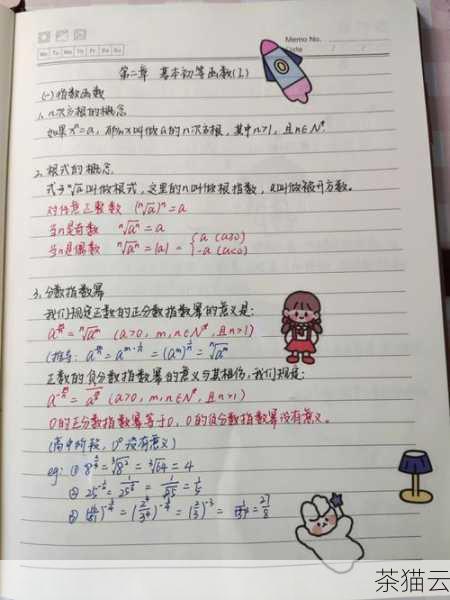 Memo No.
Date / /
Mo Tu We Th Fr Sa Su
第二章 基本初等函数(I)
(一)指数函数
1. n次方根的概念
如果xⁿ=a,那么x叫做a的n次方根,其中n>1,且n∈N*.
2. 根式的概念
式子ⁿ√a叫做根式,这里的n叫做根指数,a叫做被开方数。
对任意正整数 (ⁿ√a)ⁿ=a
当n是奇数 ⁿ√aⁿ=a
当n是偶数 ⁿ√aⁿ=|a|={a (a≥0)
-a (a<0)
3. 分数指数幂
我们规定正数的正分数指数幂的意义是:
a^(m/n)=ⁿ√a^m (a>0, m,n∈N*,且n>1)
a^(m/n)=a^(m·1/n)=(a^m)^(1/n)=ⁿ√a^m
正数的负分数指数幂的意义与其相仿,我们规定:
a^(-m/n)=1/a^(m/n) (a>0, m,n∈N*,且n>1)
0的正分数指数幂等于0,0的负分数指数幂没有意义。
(高中阶段,0⁰没有意义)
eg: ① 8^(2/3)=³√8²=³√64=4
② 25^(-1/2)=1/25^(1/2)=1/√25=1/5
③ (16/81)^(-3/4)=(2⁴/3⁴)^(-3/4)=(2/3)^(-3)=27/8
茶猫云